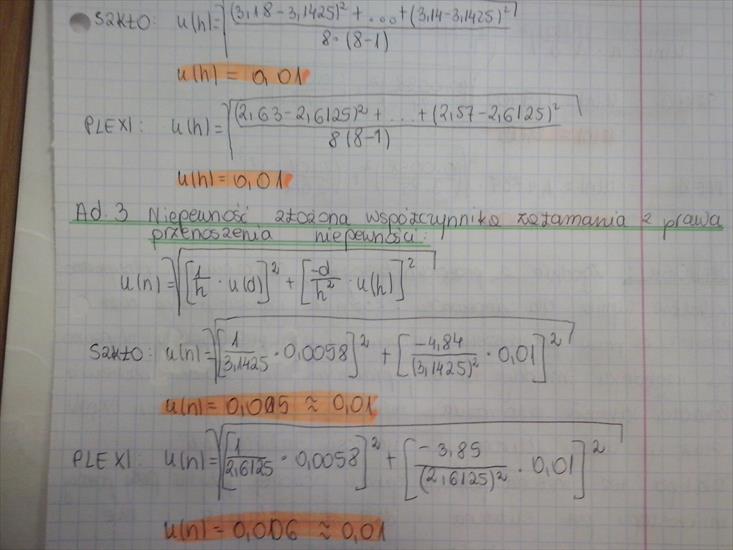 SZKŁO: u(h)=√((3,18-3,1425)² + ... + (3,14-3,1425)²)/(8·(8-1))
u(h) = 0,01
PLEXI: u(h)=√((2,63-2,6125)² + ... + (2,57-2,6125)²)/(8(8-1))
u(h)=0,01
Ad. 3 Niepewność złożona współczynnika załamania z prawa
przenoszenia niepewności:
u(n)=√[1/h · u(d)]² + [-d/h² · u(h)]²
SZKŁO: u(n)=√[1/3,1425 · 0,0058]² + [-4,84/(3,1425)² · 0,01]²
u(n)= 0,005 ≈ 0,01
PLEXI u(n)=√[1/2,6125 · 0,0058]² + [-3,85/(2,6125)² · 0,01]²
u(n)= 0,006 ≈ 0,01